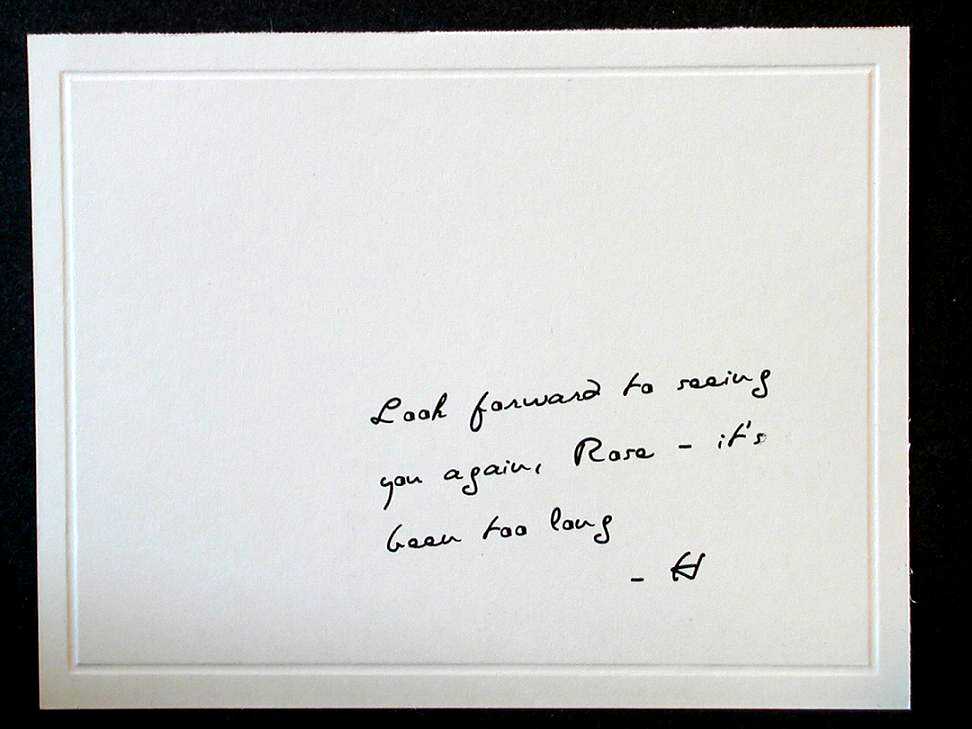 Look forward to seeing
you again, Rose - it's
been too long
- H